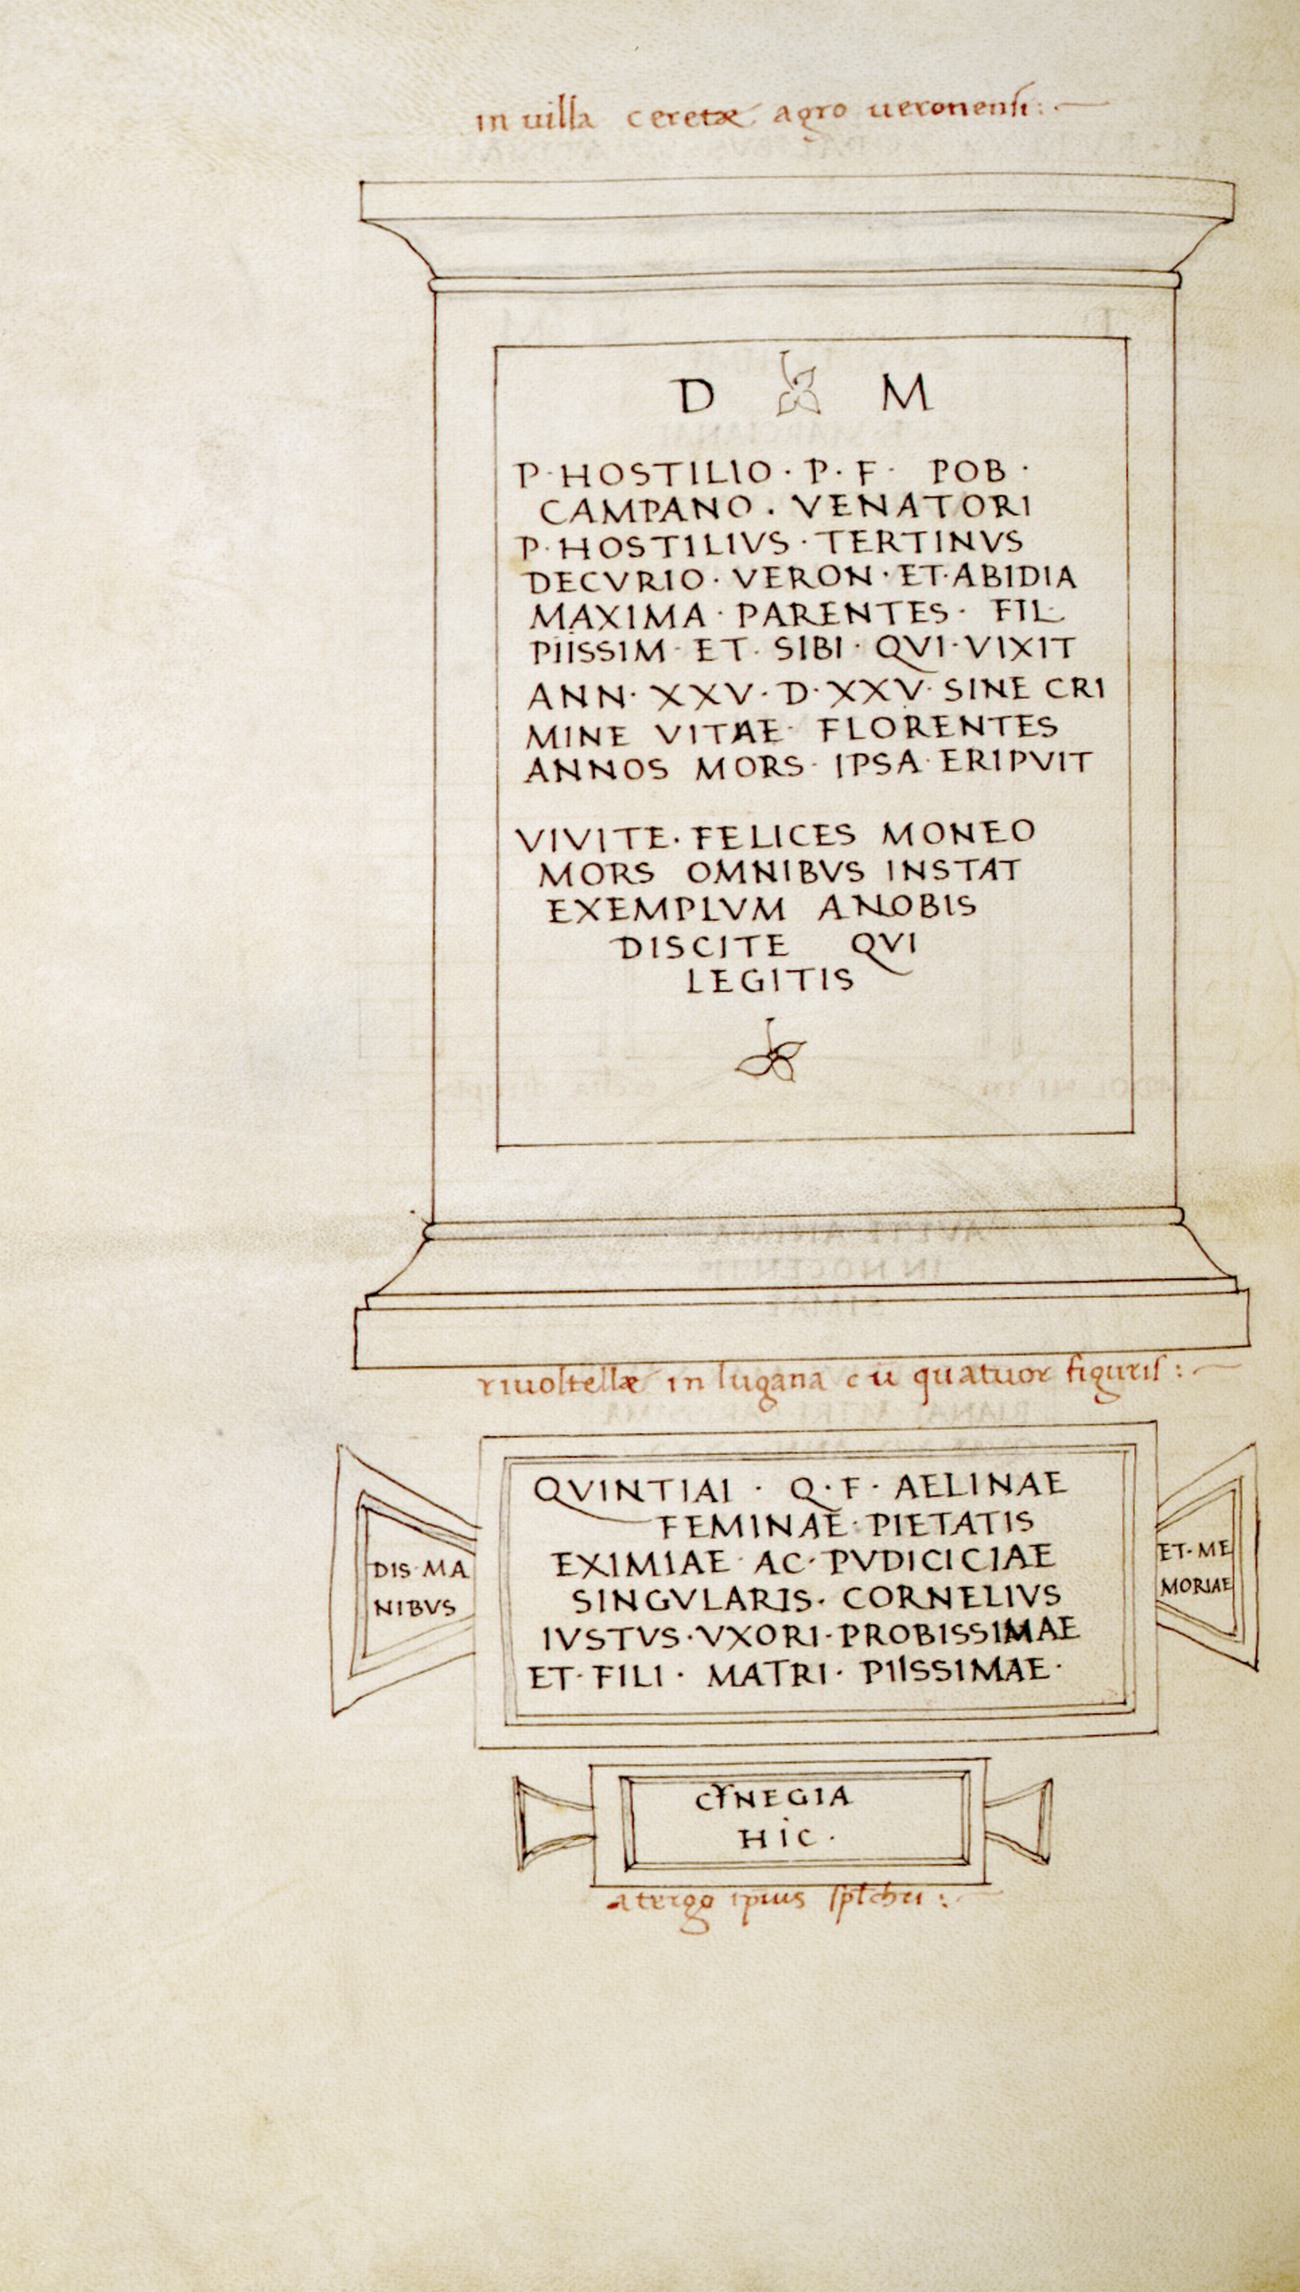 in uilla ceretæ agro ueronensi:
D M
P·HOSTILIO·P·F· POB·
CAMPANO·VENATORI
P·HOSTILIVS·TERTINVS
DECVRIO·VERON·ET·ABIDIA
MAXIMA·PARENTES· FIL
PIISSIM·ET·SIBI·QVI·VIXIT
ANN·XXV·D·XXV·SINE CRI
MINE VITAE· FLORENTES
ANNOS MORS·IPSA·ERIPVIT
VIVITE·FELICES MONEO
MORS OMNIBVS INSTAT
EXEMPLVM ANOBIS
DISCITE QVI
LEGITIS
riuoltellæ in lugana cū quatuor figuris:
DIS·MA
NIBVS
QVINTIAI · Q·F· AELINAE
FEMINAE·PIETATIS
EXIMIAE·AC·PVDICICIAE
SINGVLARIS·CORNELIVS
IVSTVS·VXORI·PROBISSIMAE
ET·FILI·MATRI·PIISSIMAE·
ET·ME
MORIAE
CYNEGIA
HIC·
a tergo ipius